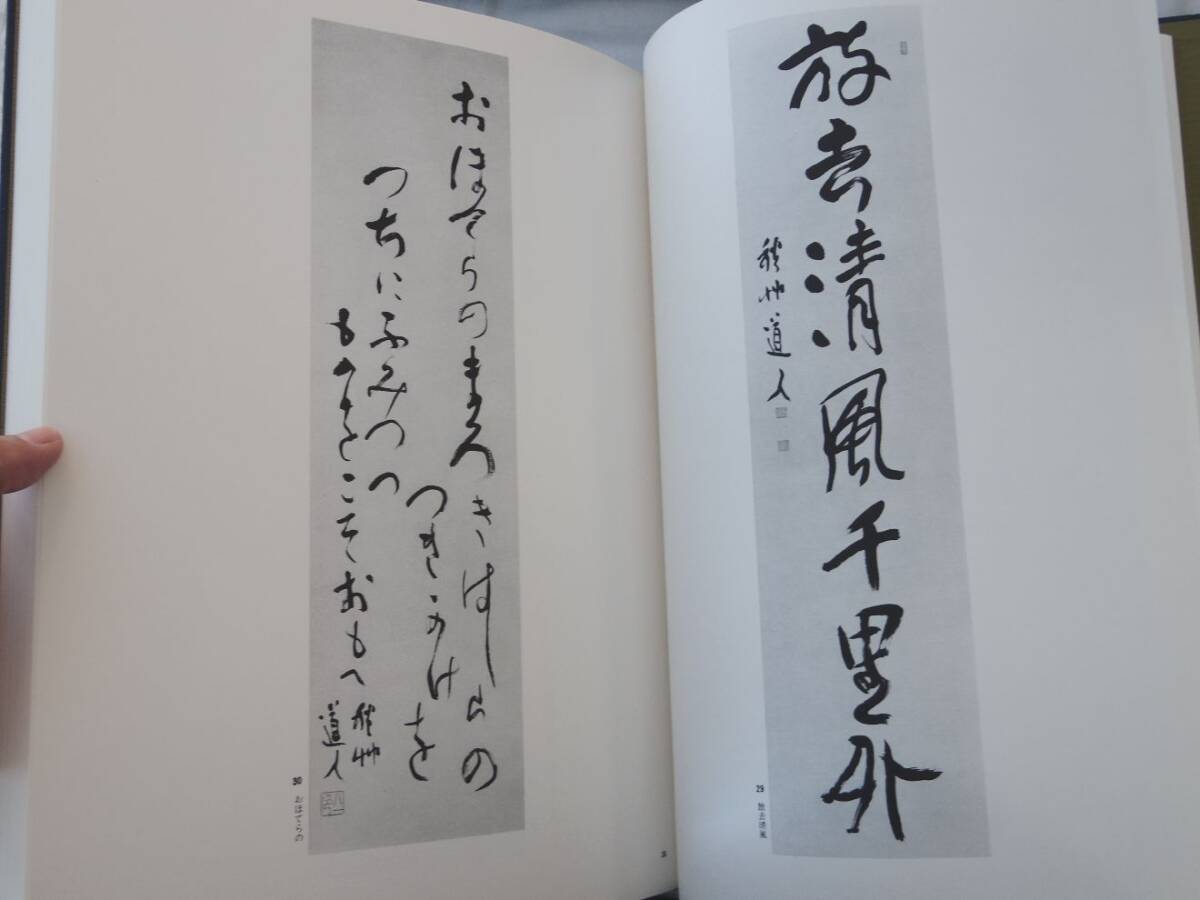 放去清風千里外
秋艸道人
29 放去清風
おほてらのまろきはしらの
つきかけを
つちにふみつつ
ものをこそおもへ
秋艸
道人
30 おほてらの